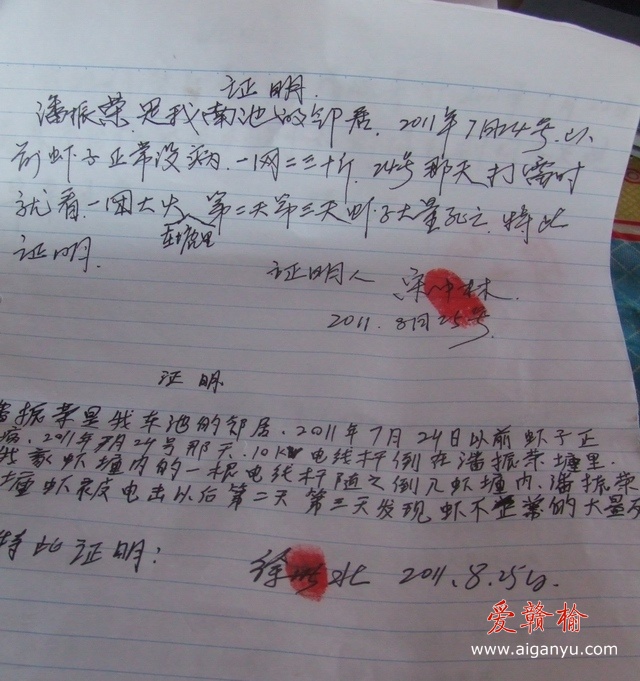 证明.
潘振荣是我南池的邻居.2011年7月24号.以
前虾子正常没病.一网二三十斤.24号那天打雷时
就看.一团大火 第二天第三天虾子大量死亡.特此
在塘里
证明.
证明人 宋 林.
2011.8月25号
证明
潘振荣是我东池的邻居.2011年7月24日以前虾子正
病.2011年7月24号那天.10KW电线杆倒在潘振荣塘里.
我家虾塘内的一根电线杆随之倒入虾塘内.潘振荣
塘虾被电击以后第二天第三天发现虾不正常的大量
特此证明:
徐 北 2011.8.25日.
爱赣榆
www.aiganyu.com